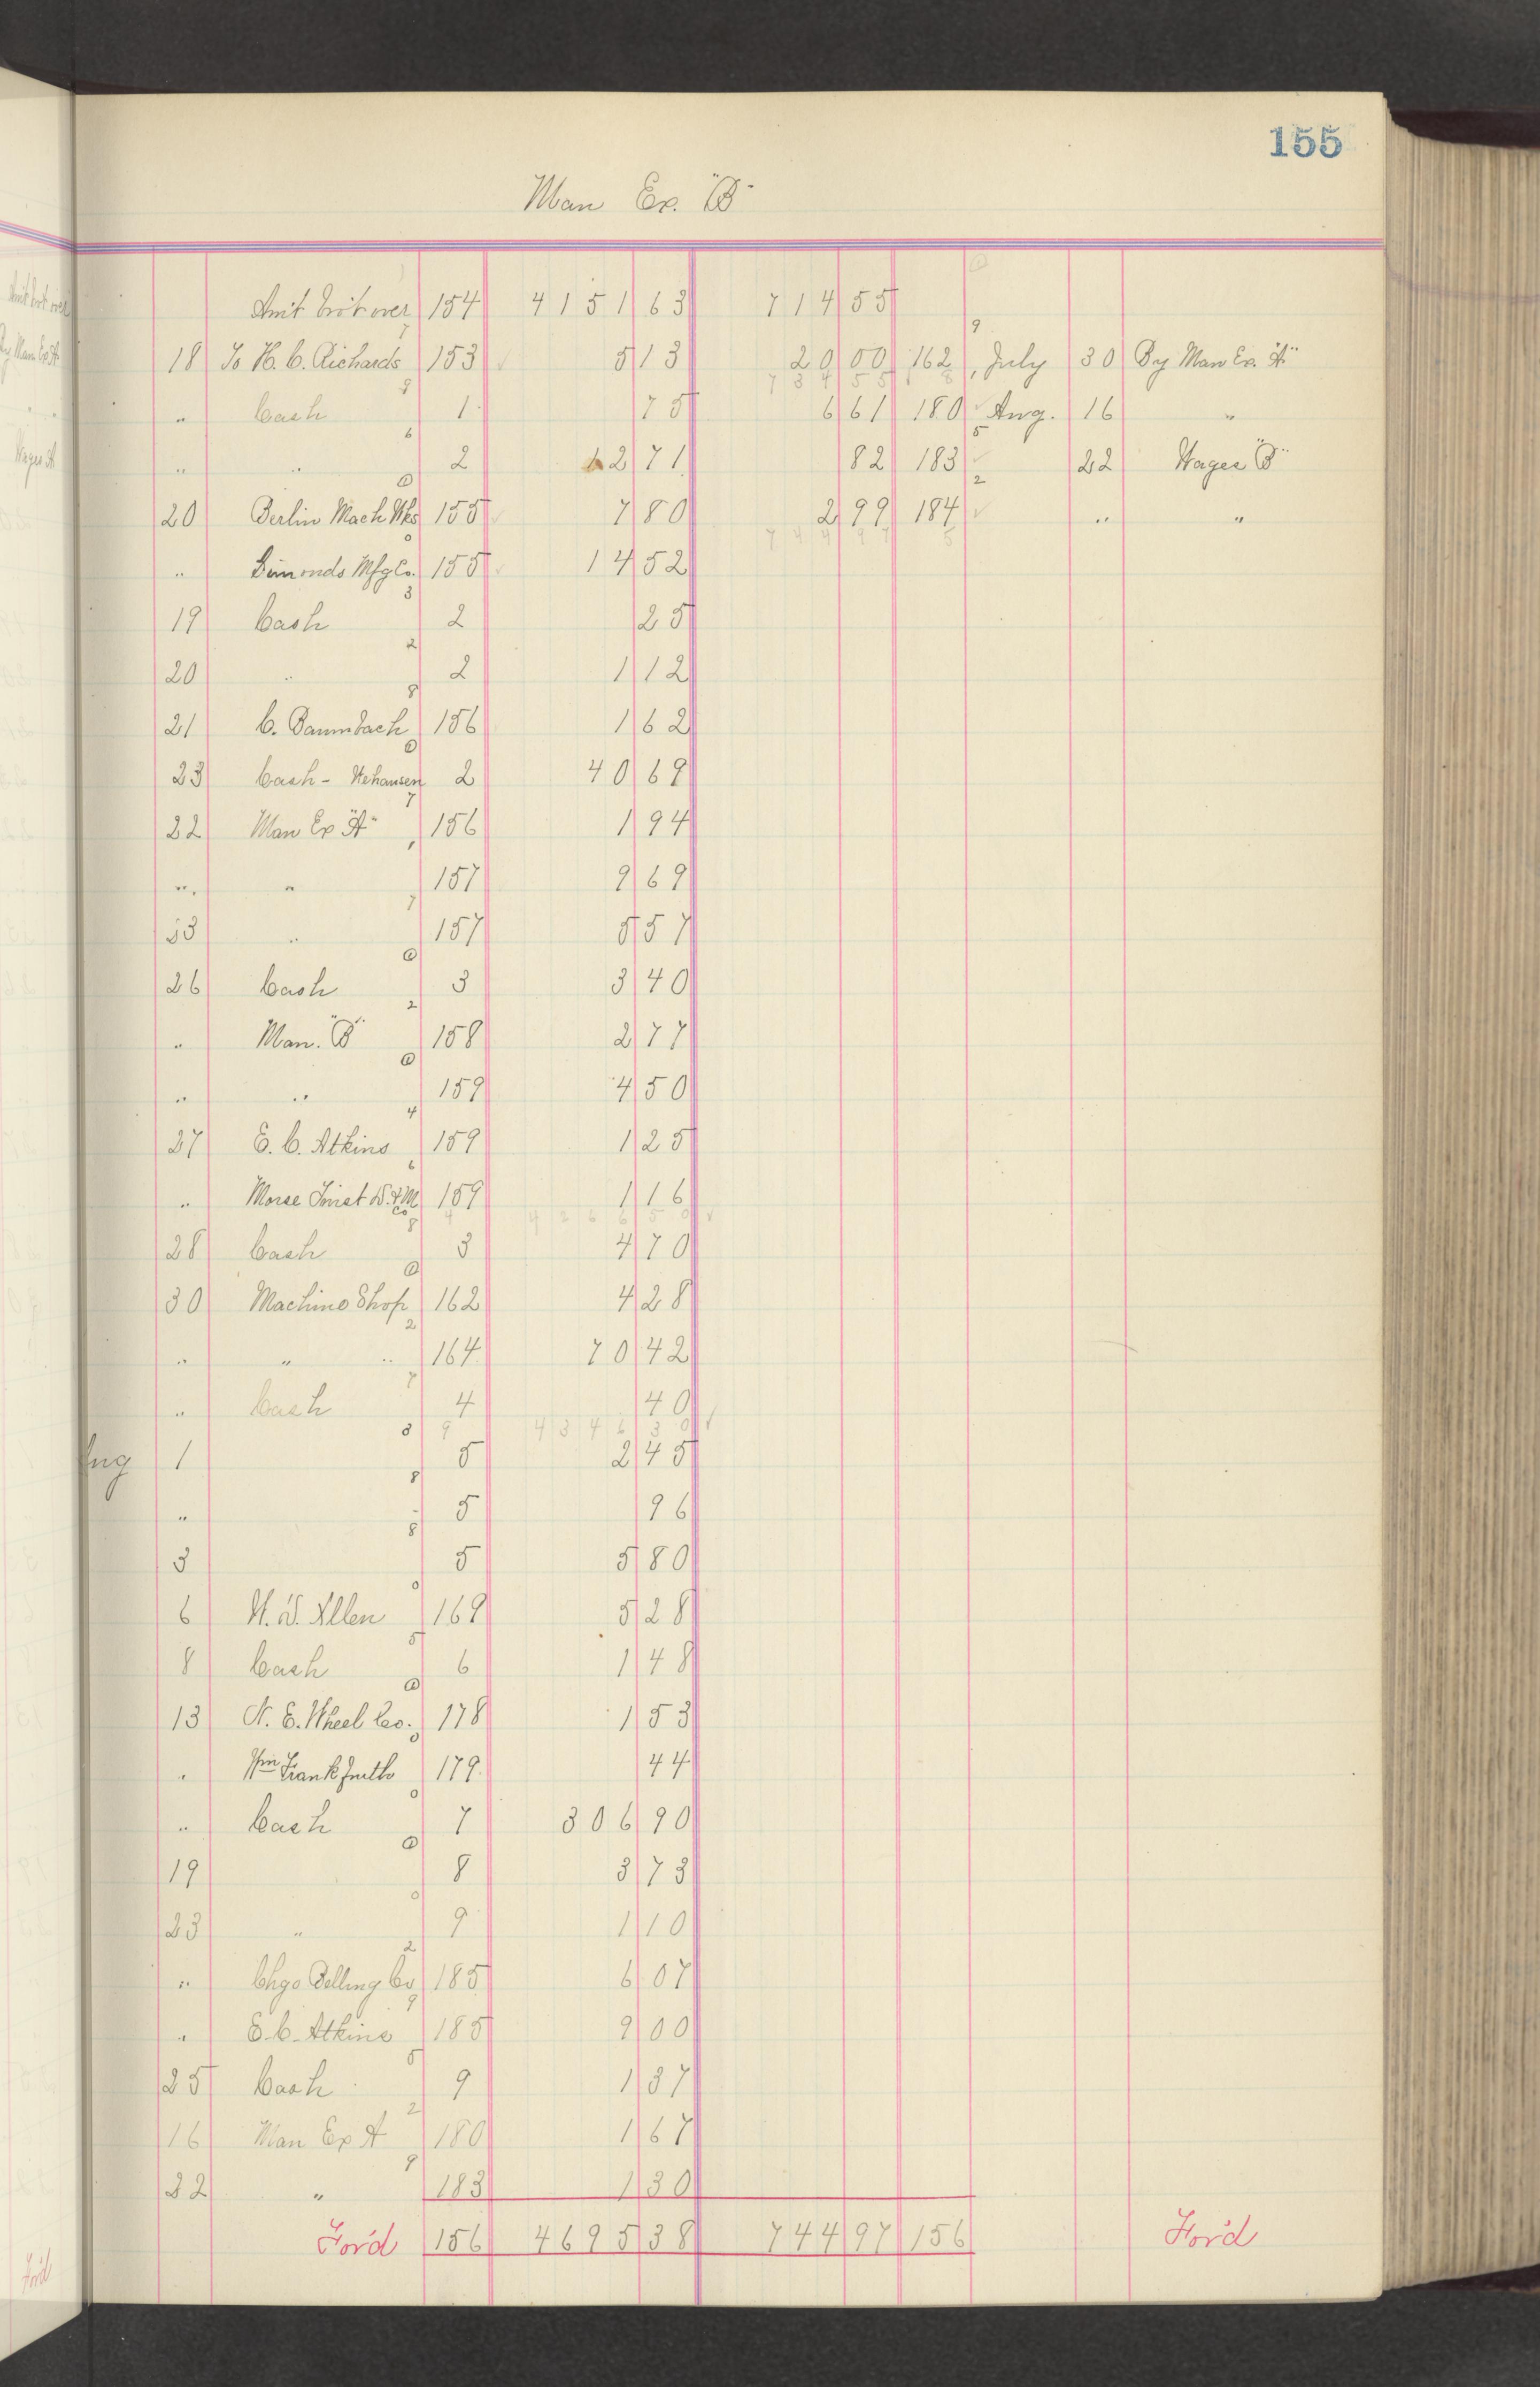 155
Man Ex. "B"
Amt brot over 154 4151 63 714 55
18 To H. C. Richards 153 5 13 20 00 162 July 30 By Man Ex. "A"
" Cash 1 75 6 61 180 Aug. 16 "
" " 2 2 71 82 183 22 Wages "B"
20 Berlin Mach Wks 155 7 80 2 99 184 " "
" Simonds Mfg Co. 155 14 52
19 Cash 2 25
20 " 2 1 12
21 C. Baumbach 156 1 62
23 Cash - Wehausen 2 40 69
22 Man Ex "A" 156 1 94
" " 157 9 69
23 " 157 5 57
26 Cash 3 3 40
" Man. "B" 158 2 77
" " 159 4 50
27 E. C. Atkins 159 1 25
" Morse Twist D. & M Co 159 1 16
4266 50
28 Cash 3 4 70
30 Machine Shop 162 4 28
" " " 164 70 42
" Cash 4 40
4346 30
Aug 1 5 2 45
" 5 96
3 5 5 80
6 W. D. Allen 169 5 28
8 Cash 6 1 48
13 N. E. Wheel Co. 178 1 53
" Wm Frankfurth 179 44
" Cash 7 306 90
19 8 3 73
23 " 9 1 10
" Chgo Belting Co 185 6 07
" E. C. Atkins 185 9 00
25 Cash 9 1 37
16 Man Ex A 180 1 67
22 " 183 1 30
For'd 156 4695 38 744 97 156 For'd